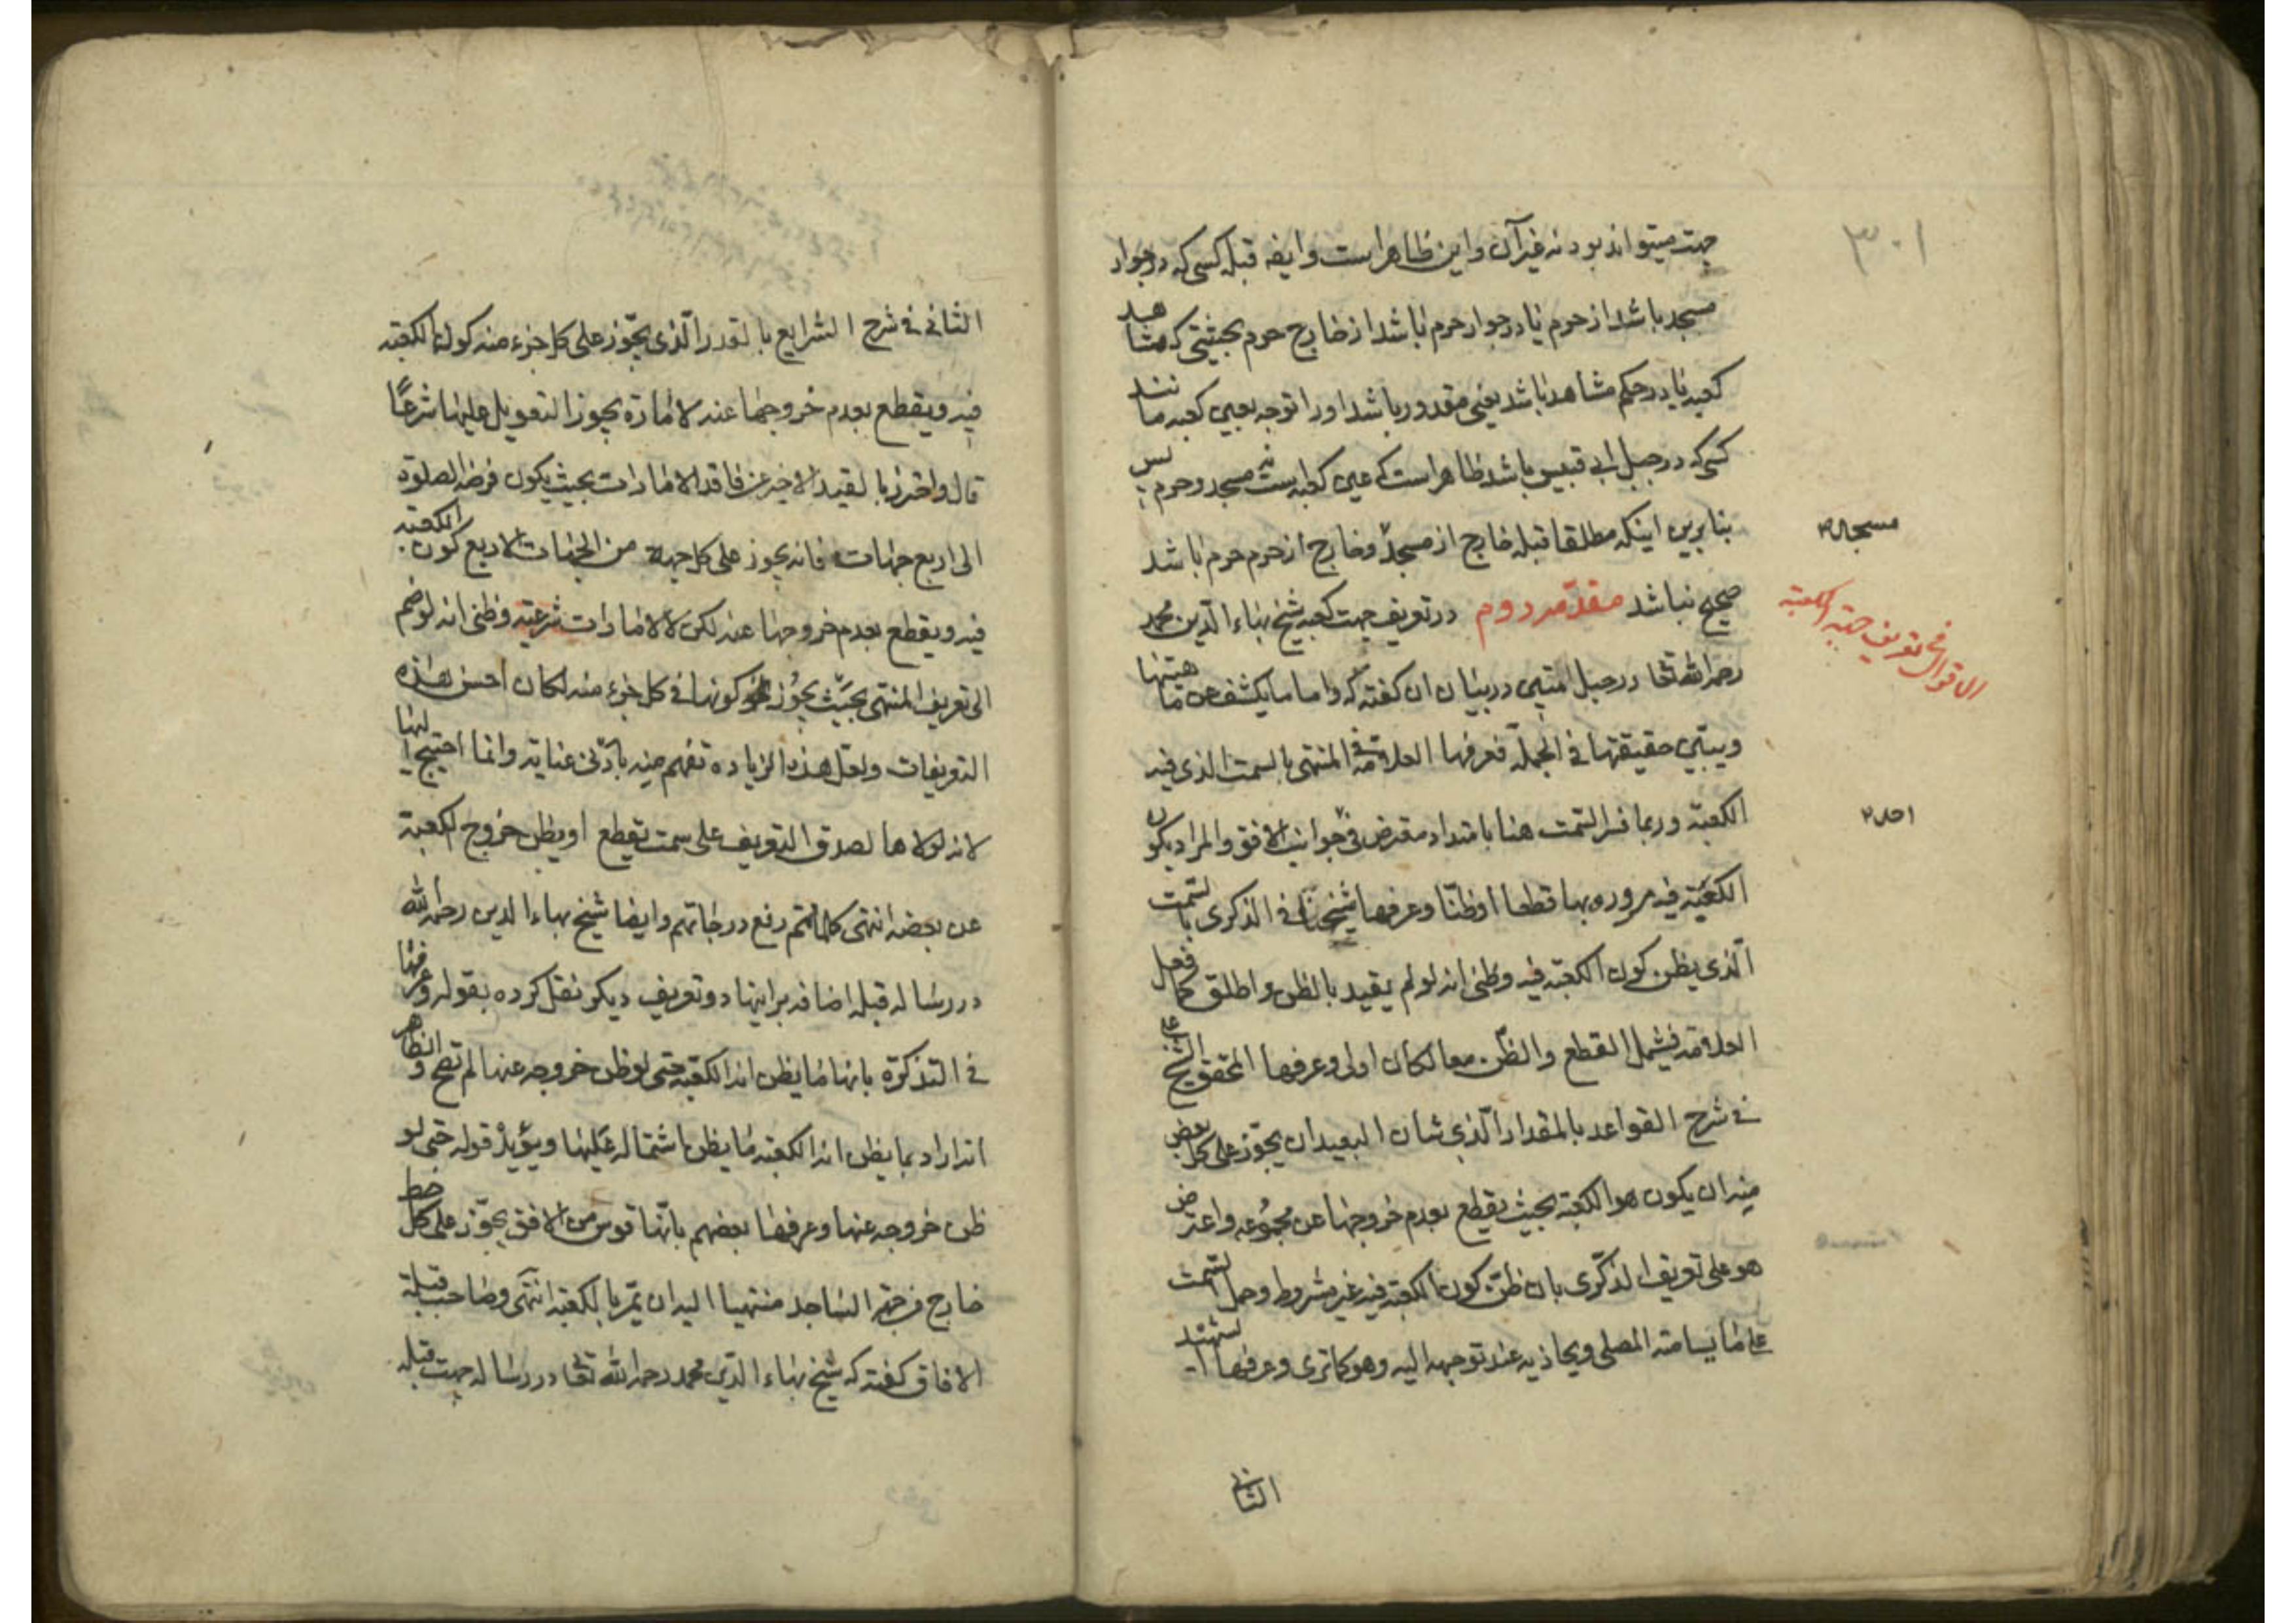 ۳۰۱
جهت میتواند بود نه غیر آن و این ظاهر است و ایضه قبله کسی که در جوار
مسجد باشد از حرم یا در جوار حرم باشد از خارج حرم بحیثیتی که مشاهد
کعبه یا در حکم مشاهد باشد یعنی مقدور باشد او را توجه بعین کعبه مانند
کسی که در جبل ابی قبیس باشد ظاهر است که عین کعبه است نه مسجد و حرم پس
بنابرین اینکه مطلقا قبله خارج از مسجد و خارج از حرم حرم باشد
مسجد
صحیح نباشد مقدمه دوم در تعریف جهت کعبه شیخ بهاء الدین محمد
الاقوال فی تعریف جهة الکعبة
رحمه الله تعا در حبل المتین در بیان ان کفته که واما ما یکشف عن ماهیتها
ویبین حقیقتها فی الجملة فعرفها العلامة فی المنتهی بالسمت الذی فیه
الکعبة وربما فسر السمت هنا بامتداد مفترض فی جوانب الافق والمراد یکون
احد
الکعبة فیه مروره بها قطعا او ظنا وعرفها شیخنا فی الذکری بالسمت
الذی یظن کون الکعبة فیه وظنی انه لو لم یقید بالظن واطلق کما فعل
العلامة فیشمل القطع والظن معا لکان اولی وعرفها المحقق الشیخ علی
فی شرح القواعد بالمقدار الذی شان البعید ان یجوز علی کل بعض
منه ان یکون هو الکعبة بحیث یقطع بعدم خروجها عن مجموعه واعترض
هو علی تعریف الذکری بان ظن کون الکعبة فیه غیر مشروط وحمل السمت
علی ما یسامته المصلی ویحاذیه عند توجهه الیه وهو کما تری وعرفها الشهید
الثانی
الثانی فی شرح الشرایع بالقدر الذی یجوز علی کل جزء منه کون الکعبة
فیه ویقطع بعدم خروجها عنه لامارة یجوز التعویل علیها شرعًا
قال واحترز بالقید الاخیر عن فاقد الامارات بحیث یکون فرضه الصلوة
الی اربع جهات فانه یجوز علی کل جهة من الجهات الاربع کون الکعبة
فیه ویقطع بعدم خروجها عنه لکن لا لامارات شرعیة وظنی انه لو ضم
الی تعریف المنتهی بحیث یجوز کونها فی کل جزء منه لکان احسن هذه
التعریفات ولعل هذه الزیاده تفهم منه بادنی عنایة وانما احتیج الیها
لانه لولاها لصدق التعریف علی سمت یقطع او یظن خروج الکعبة
عن بعضه انتهی کلامهم رفع درجاتهم وایضا شیخ بهاء الدین رحمه الله
در رساله قبله اضافه براینها دو تعریف دیکر نقل کرده بقوله وعرفها
فی التذکرة بانها ما یظن انه الکعبة حتی لو ظن خروجه عنها لم تصح والظاهر
انه اراد بما یظن انه الکعبة ما یظن اشتماله علیها ویؤید قوله حتی لو
ظن خروجه عنها وعرفها بعضهم بانها قوس من الافق یجوز علی کل خط
خارج من جهة الساجد منتهیا الیه ان یمر بالکعبة انتهی وصاحب قبلة
الافاق کفته که شیخ بهاء الدین محمد رحمه الله تعا در رساله جهت قبله